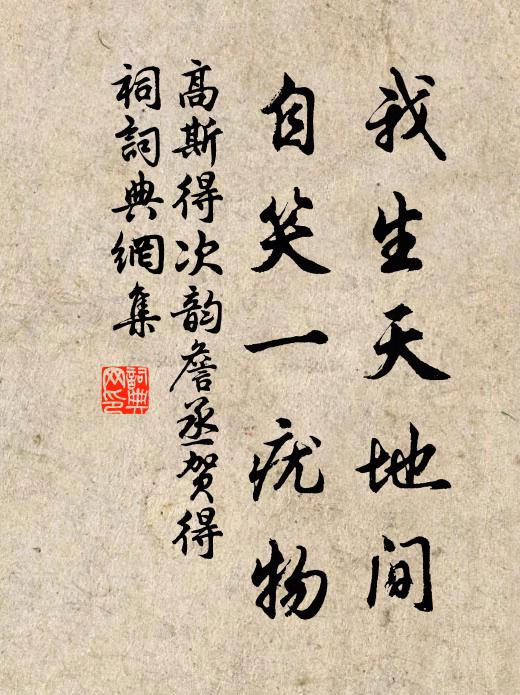 我生天地间
自笑一疣物
高斯得次韵詹丞贺得
祠詞典網集
詞典網印